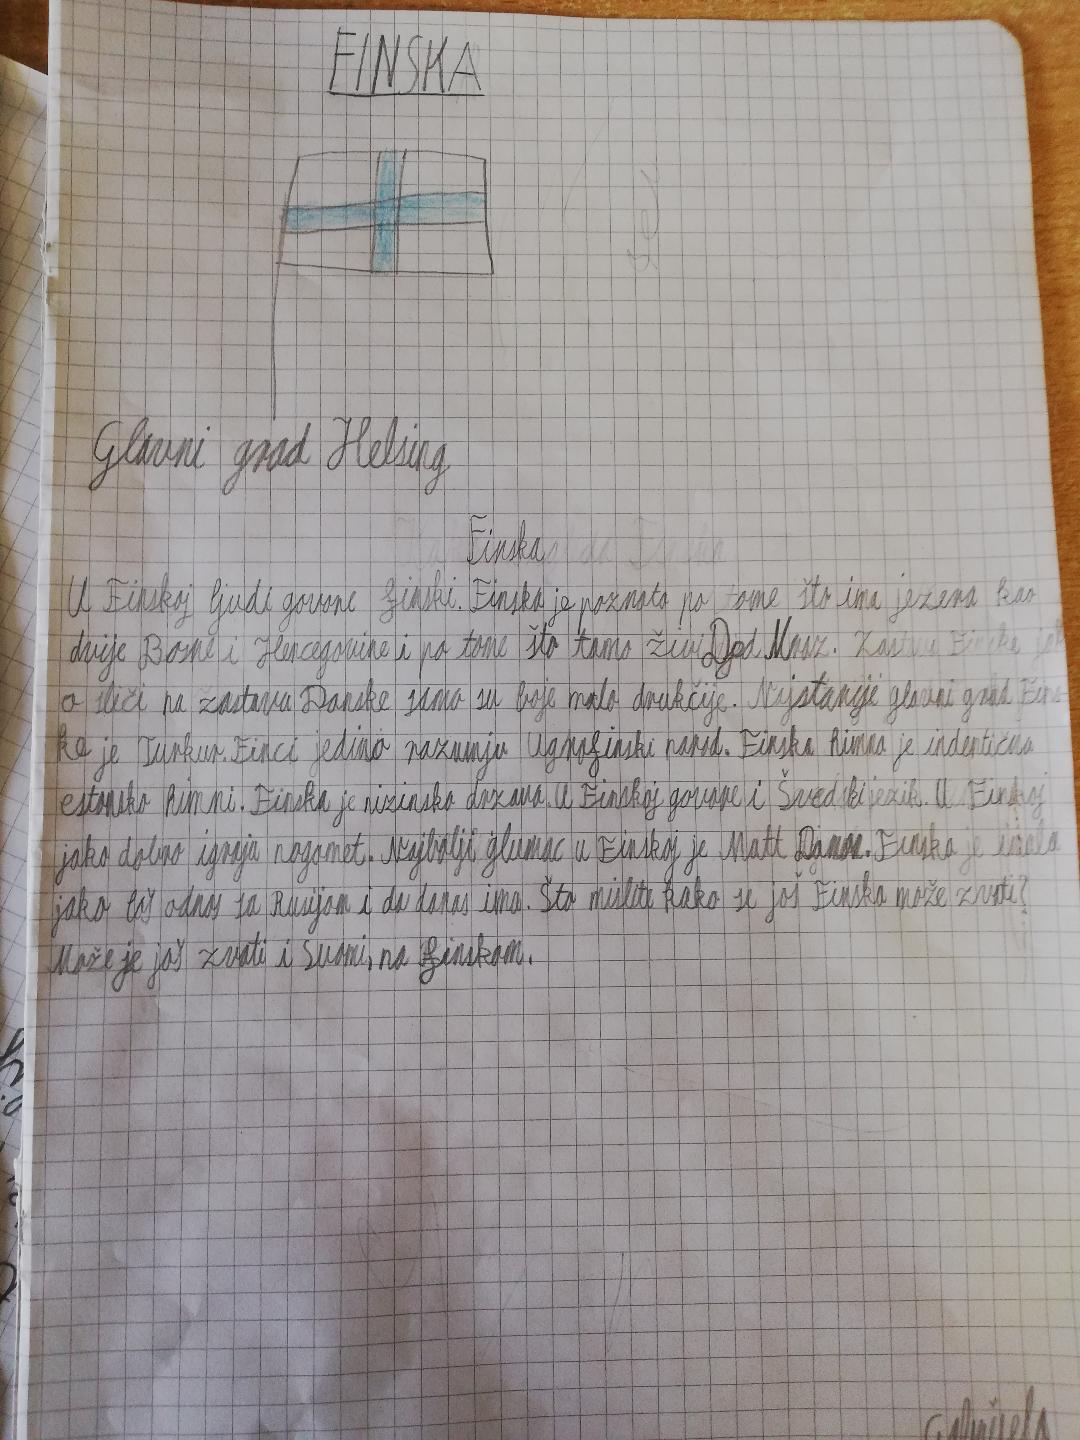 FINSKA
Glavni grad Helsing
Finska
U Finskoj ljudi govore finski. Finska je poznata po tome što ima jezera kao
dvije Bosne i Hercegovine i po tome što tamo živi Djed Mraz. Zastava Finske jak
o sliči na zastavu Danske samo su boje malo drukčije. Najstariji glavni grad Fins-
ke je Turkur. Finci jedino razumiju Ugrofinski narod. Finska himna je indentična
estonsko himni. Finska je nizinska država. U Finskoj govore i Švedski jezik. U Finskoj
jako dobro igraju nogomet. Najbolji glumac u Finskoj je Matt Damon. Finska je imala
jako loš odnos sa Rusijom i do danas ima. Što mislite kako se još Finska može zvati?
Može je još zvati i Suomi, na finskom.
Gabrijela